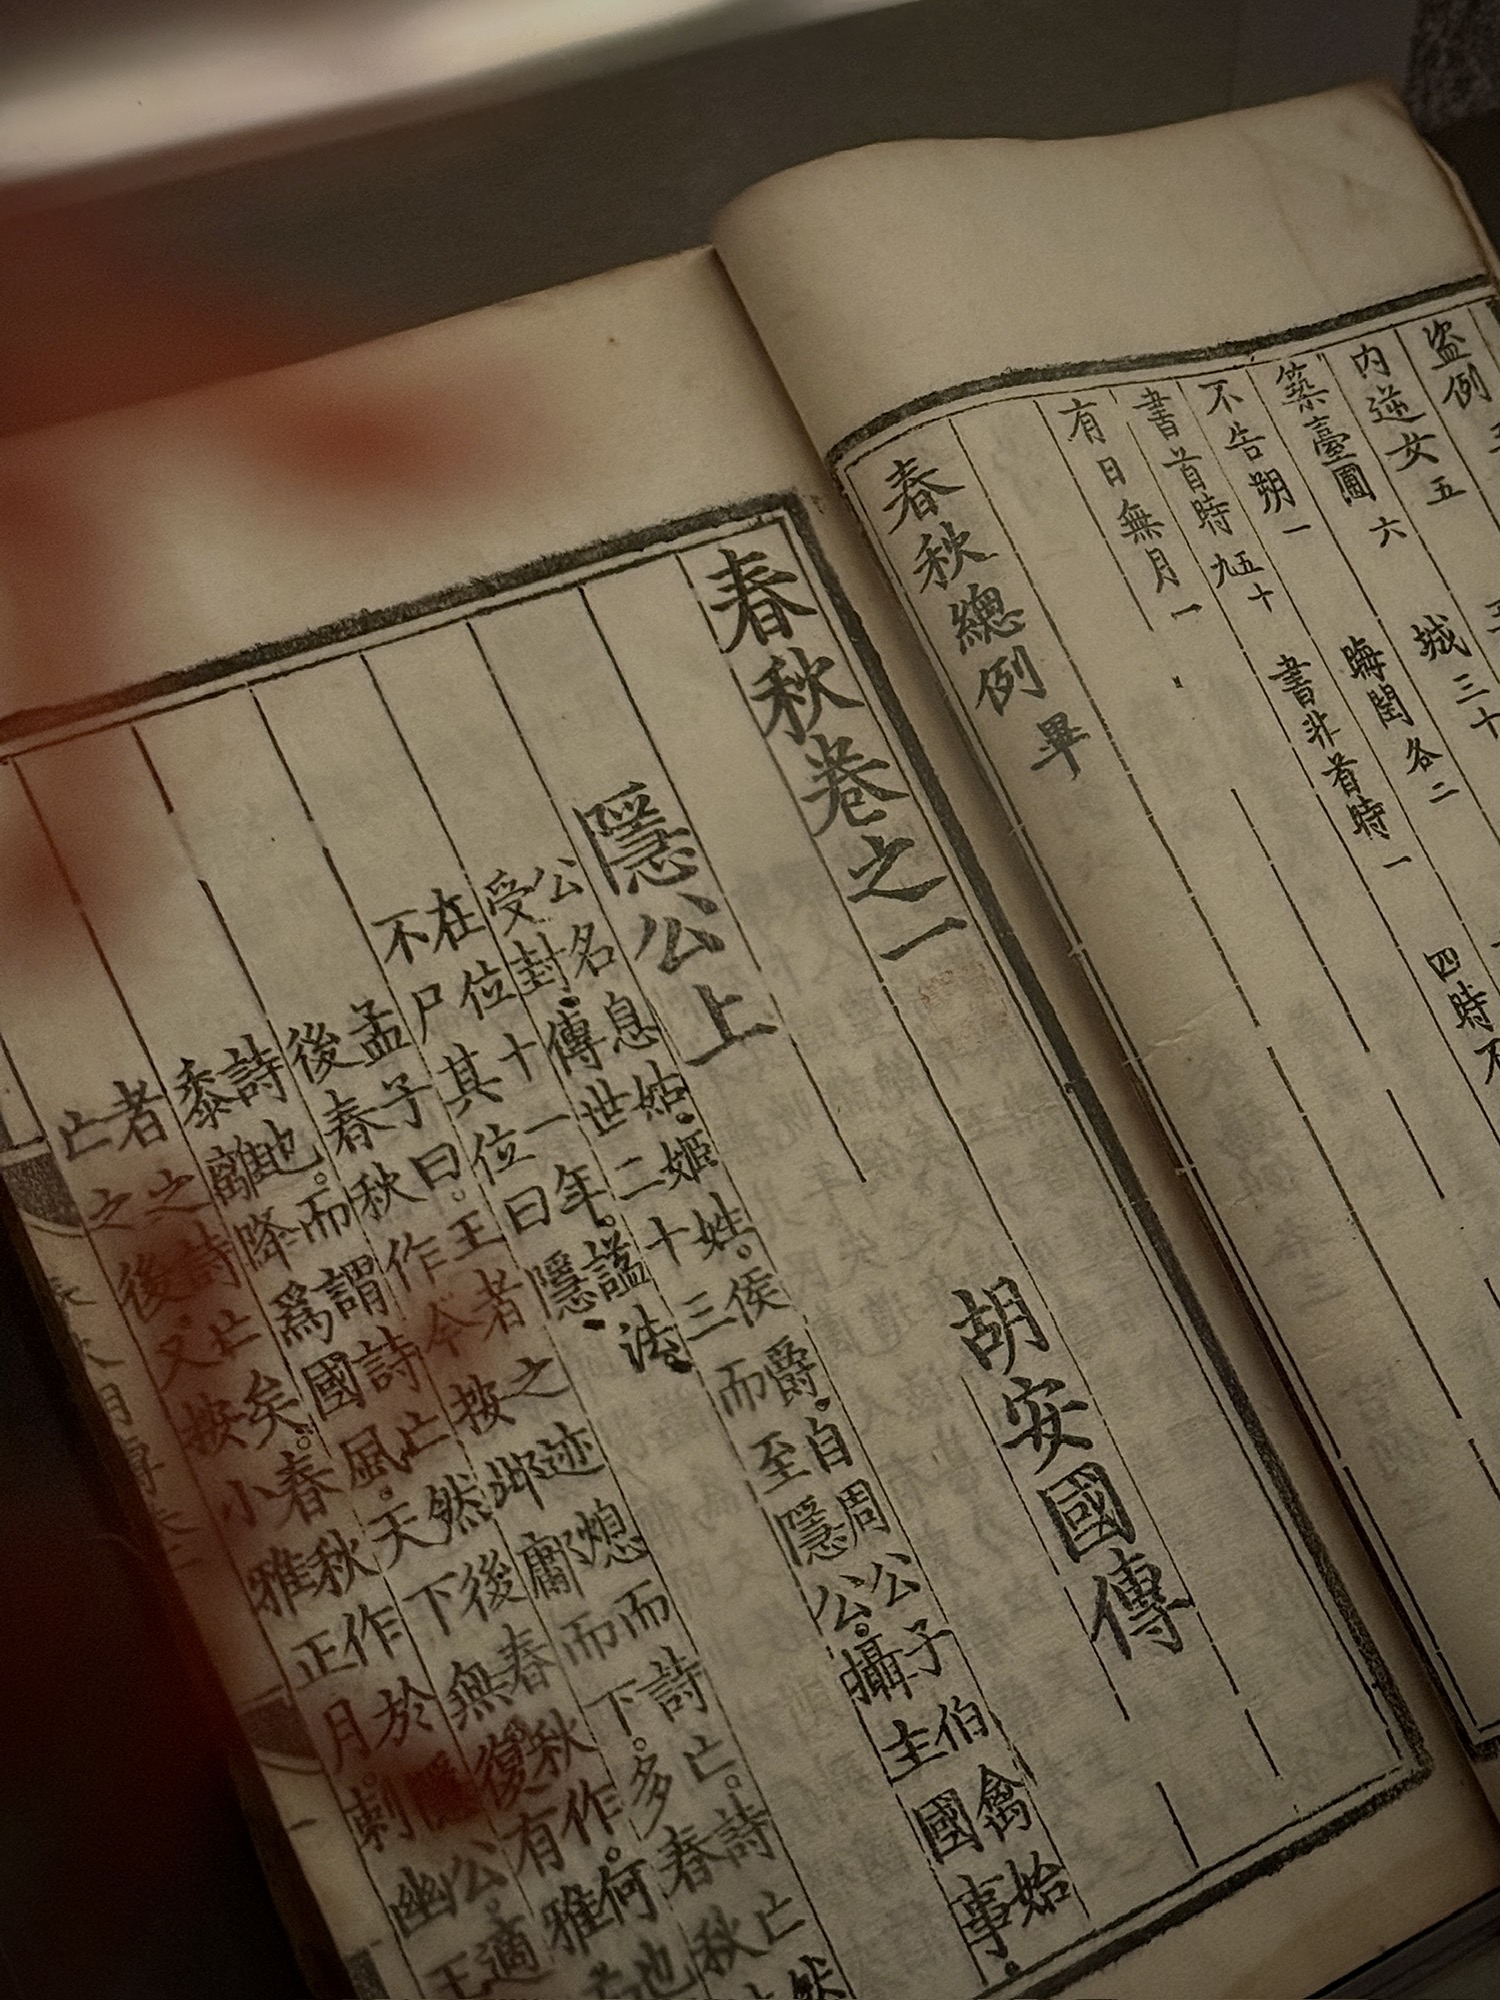 盜例
内逆女五
築臺囿六 城三十
不告朔一 晦閏各二
書首時五十九 書非首時一 四時不
有日無月一
春秋總例畢
春秋卷之一
胡安國傳
隱公上
公名息姑.姬姓。侯爵.自周公子伯禽始
受封.傳世二十三而至隱公。攝主國事。
在位十一年。諡法
不尸其位曰隱.
孟子曰。王者之迹熄而詩亡。詩亡然
後春秋作今按邶鄘而下。多春秋
詩也。而謂詩亡然後春秋作。何也
黍離降爲國風。天下無復有雅
者之詩亡矣。春秋作於隱公。適
亡之後。又按小雅正月。刺幽王